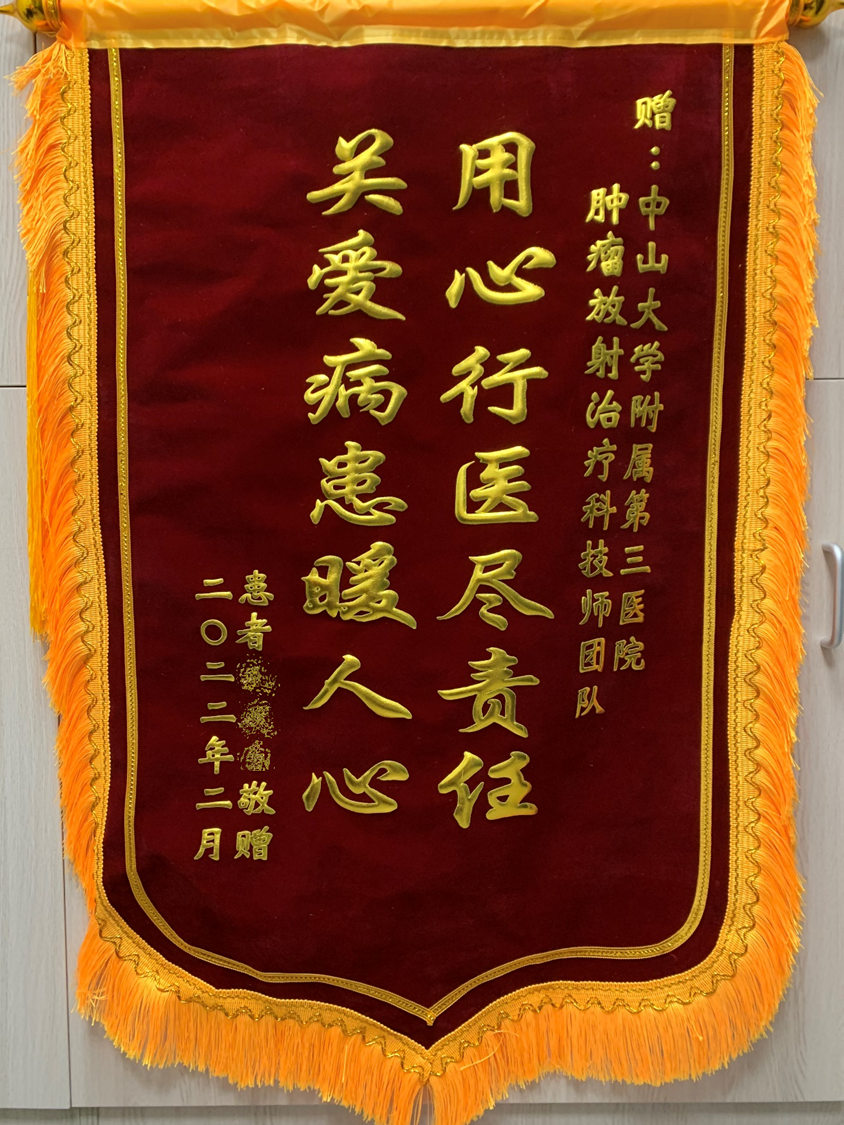 赠：中山大学附属第三医院
肿瘤放射治疗科技师团队
用心行医尽责任
关爱病患暖人心
患者敬赠
二〇二二年二月